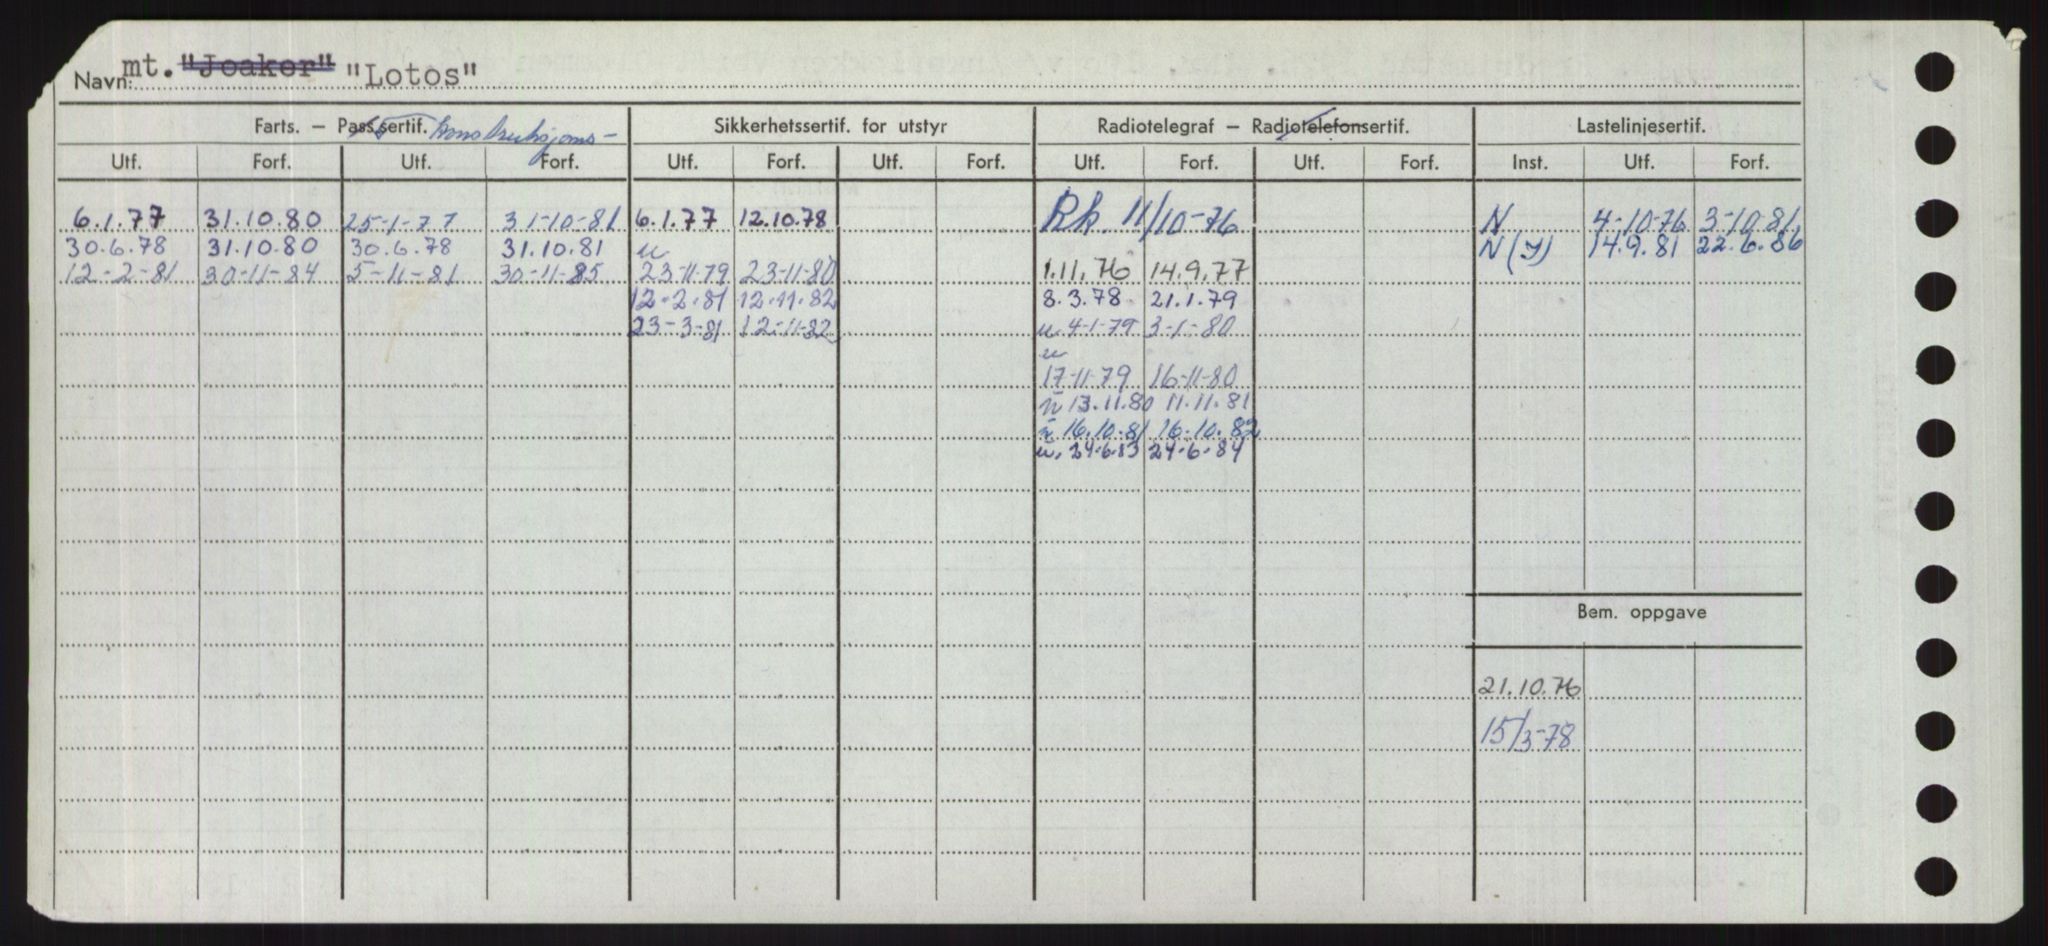 Navn: mt. "Joaker" "Lotos"
Farts. – Pass.sertif. konstruksjons- Sikkerhetssertif. for utstyr Radiotelegraf – Radiotelefonsertif. Lastelinjesertif.
Utf. Forf. Utf. Forf. Utf. Forf. Utf. Forf. Utf. Forf. Utf. Forf. Inst. Utf. Forf.
6.1.77 31.10.80 25-1-77 31-10-81 6.1.77 12.10.78 Rk. 11/10-76 N 4-10-76 3-10-81
30.6.78 31.10.80 30.6.78 31.10.81 u N(Y) 14.9.81 22.6.86
12-2-81 30-11-84 5-11-81 30-11-85 23-11-79 23-11-80 1.11.76 14.9.77
12.2.81 12.11.82 8.3.78 21.1.79
23-3-81 12-11-82 u 4-1-79 3-1-80
u
17-11-79 16-11-80
u 13.11.80 11.11.81
u 16.10.81 16.10.82
u. 24.6.83 24-6-84
Bem. oppgave
21.10.76
15/3-78